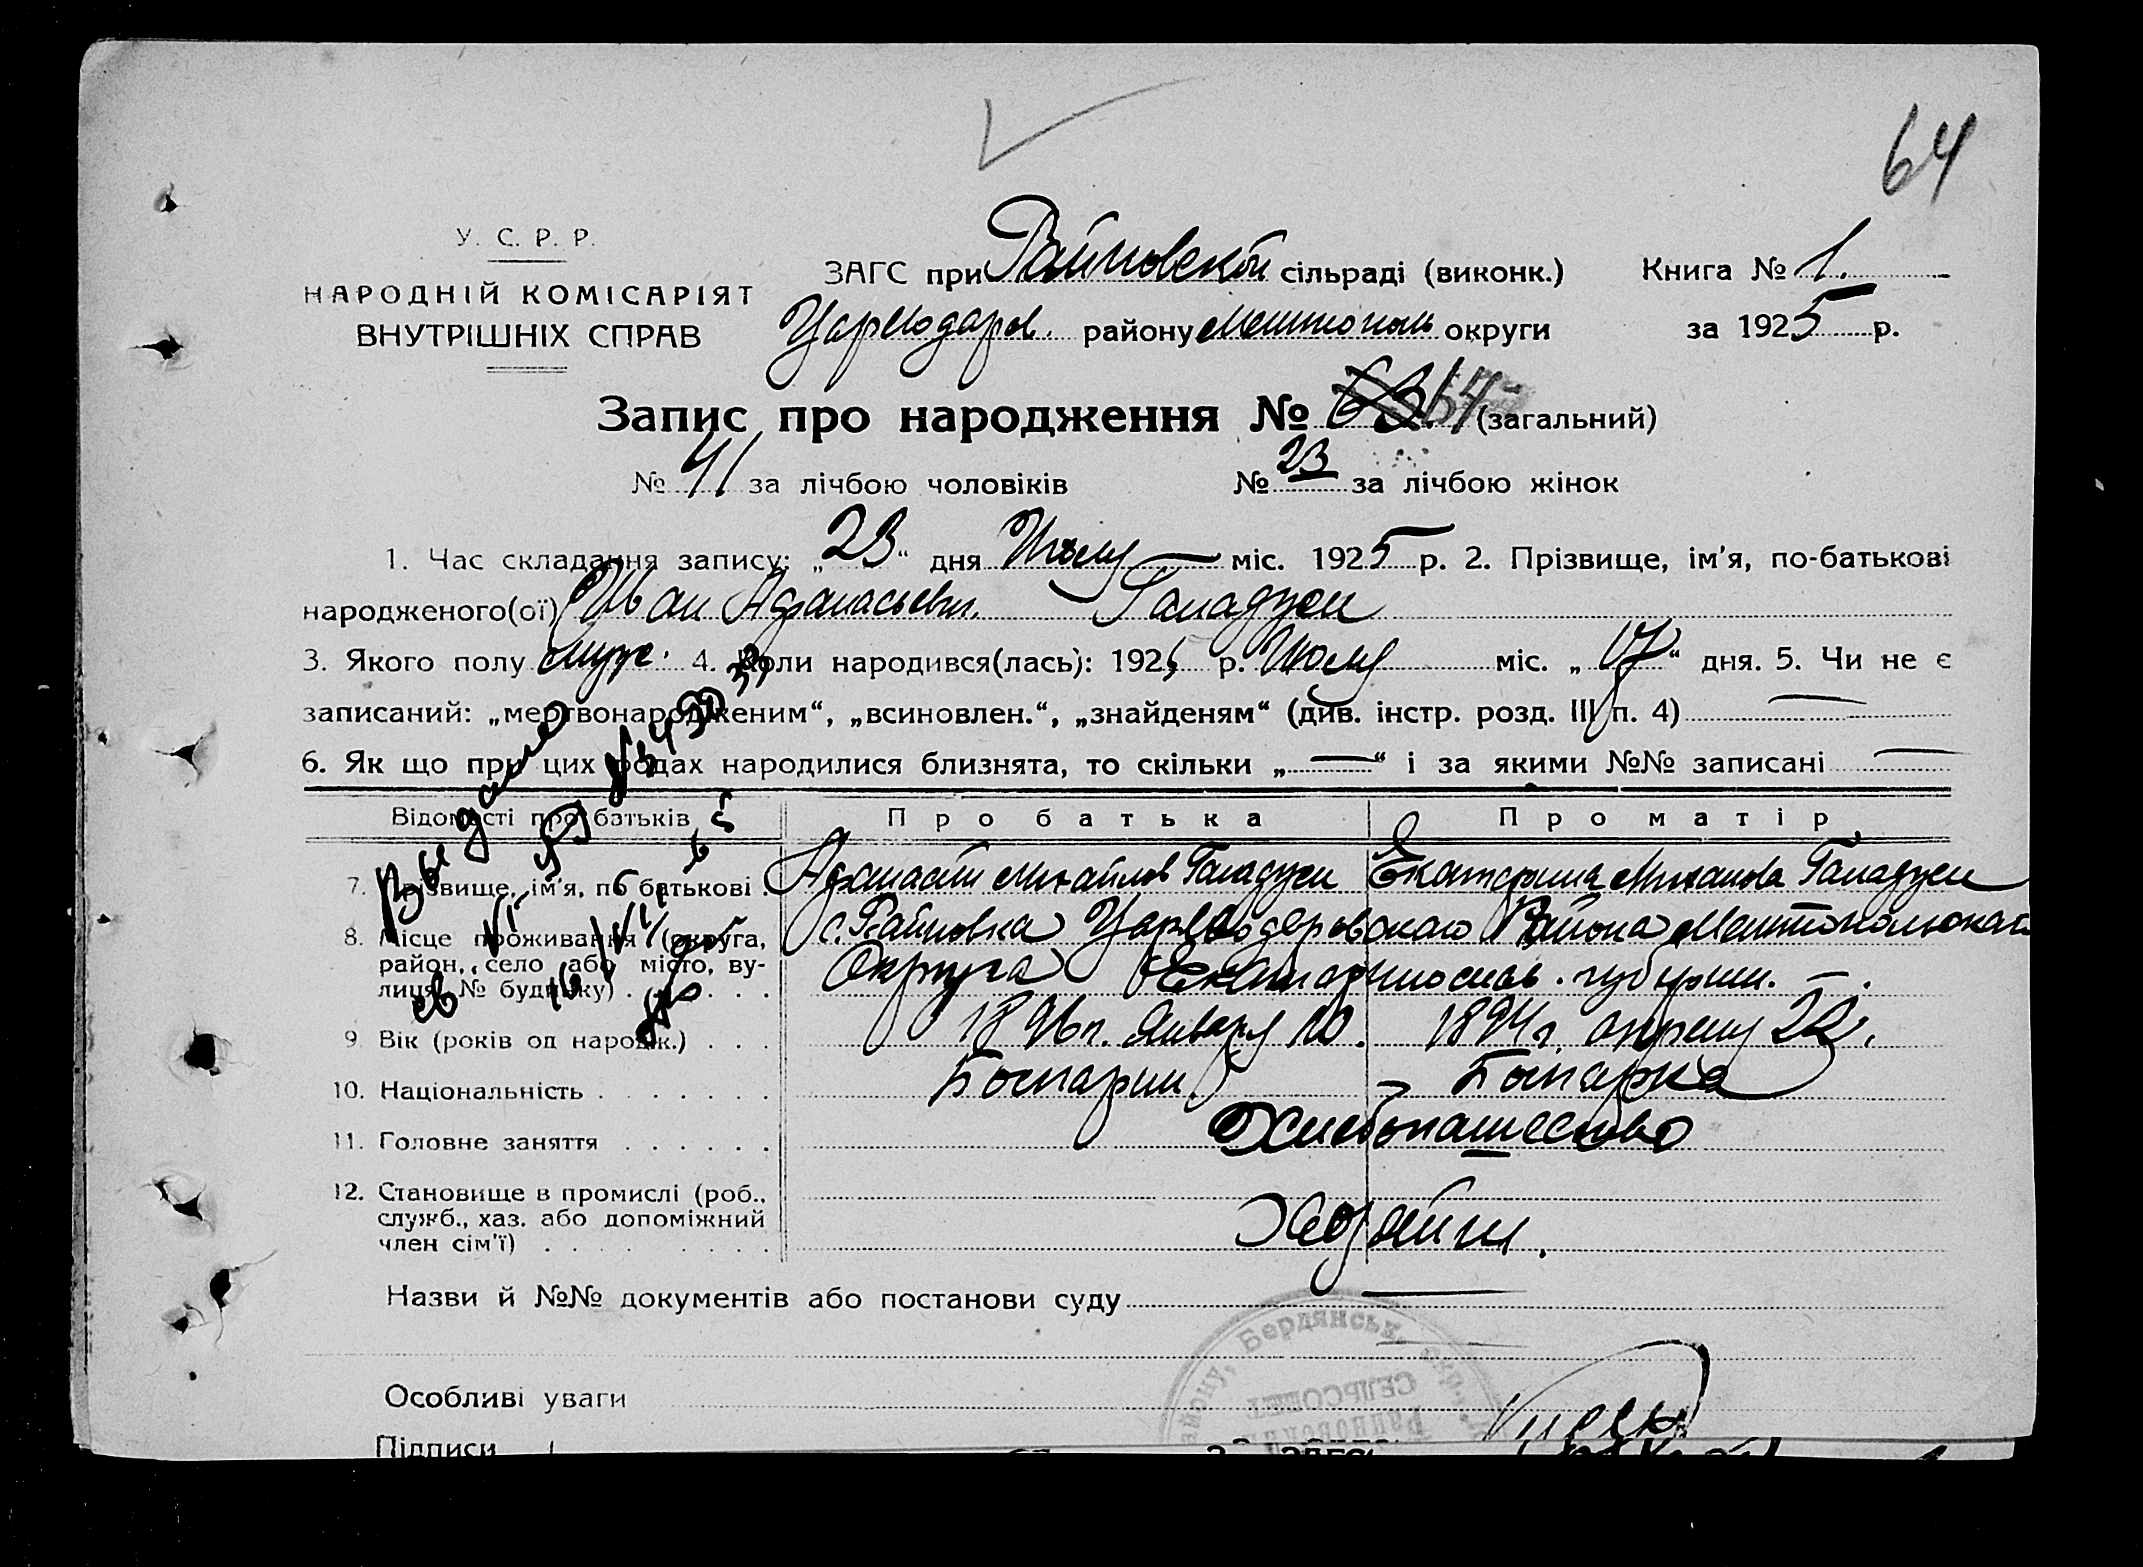 64
У. С. Р. Р.
НАРОДНІЙ КОМІСАРІЯТ
ВНУТРІШНІХ СПРАВ
ЗАГС при Райновской сільраді (виконк.) Книга № 1.
Цареводаров. району Мелитополь округи за 1925 р.
Запис про народження № 64 (загальний)
№ 41 за лічбою чоловіків № 23 за лічбою жінок
1. Час складання запису: „23“ дня Июля міс. 1925 р. 2. Прізвище, ім'я, по-батькові
народженого(ої) Иван Афанасьевич. Галадуей
3. Якого полу муж. 4. Коли народився(лась): 1925 р. Июля міс. „17“ дня. 5. Чи не є
записаний: „мертвонародженим“, „всиновлен.“, „знайденям“ (див. інстр. розд. III п. 4)
6. Як що при цих родах народилися близнята, то скільки „—“ і за якими №№ записані —
Відомості про батьків Про батька Про матір
7. Прізвище, ім'я, по батькові . Афанасий Михайлов Галадуей Екатерина Михайлова Галадуей
8. Місце проживання (округа, с. Райновка Цареводаровского Района Мелитопольского
район, село або місто, ву- Округа Екатеринослав. губернии.
лиця, № будинку) . . . .
9. Вік (років од народж.) . . . 1896 г. Января 10. 1894 г. апреля 22.
10. Національність . . . . . . . Болгарин Болгарка
11. Головне заняття . . . . . . Хлебопашество
12. Становище в промислі (роб.,
служб., хаз. або допоміжний Хозяйн.
член сім'ї) . . . . . . . .
Назви й №№ документів або постанови суду
Бердянськ. окр.
СЕЛЬСОВЕТ
Особливі уваги
Підписи